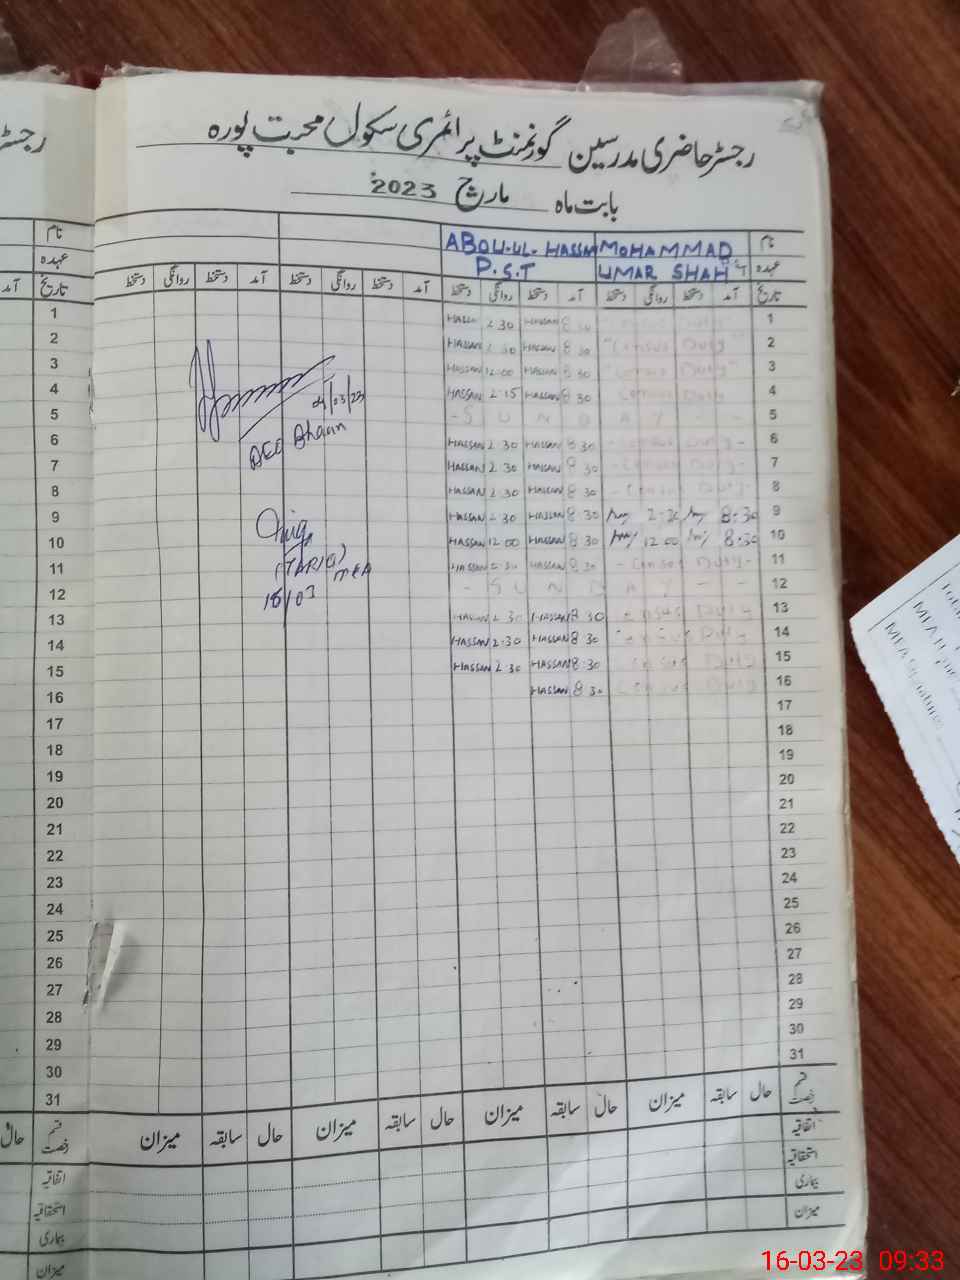 رجسٹر حاضری مدرسین گورنمنٹ پرائمری سکول محبت پورہ
بابت ماہ مارچ 2023
نام MOHAMMAD ABOU-UL-HASSAN نام
عہدہ UMAR SHAH P.S.T عہدہ
تاریخ آمد دستخط روانگی دستخط آمد دستخط روانگی دستخط آمد دستخط روانگی دستخط آمد دستخط روانگی دستخط تاریخ آمد
1 "Census Duty" 8 30 HASSAN 2 30 HASSAN 1
2 "Census Duty" 8 30 HASSAN 2 30 HASSAN 2
3 "Census Duty" 8 30 HASSAN 12 00 HASSAN 3
4 Census Duty 8 30 HASSAN 2 15 HASSAN 4
04/03/23
5 - S U N D A Y - - 5
DEO
6 - Census Duty - 8 30 HASSAN 2 30 HASSAN 6
7 - Census Duty - 8 30 HASSAN 2 30 HASSAN 7
8 - Census Duty - 8 30 HASSAN 2 30 HASSAN 8
9 8:30 2:30 8 30 HASSAN 2 30 HASSAN 9
10 8:30 12 00 8 30 HASSAN 12 00 HASSAN 10
(TARIQ) MEA
11 - Census Duty - 8 30 HASSAN 2 30 HASSAN 11
15/03
12 - S U N D A Y - - 12
13 Census Duty 8 30 HASSAN 2 30 HASSAN 13
14 Census Duty 8 30 HASSAN 2:30 HASSAN 14
15 Census Duty 8:30 HASSAN 2 30 HASSAN 15
16 Census Duty 8 30 HASSAN 16
17 17
18 18
19 19
20 20
21 21
22 22
23 23
24 24
25 25
26 26
27 27
28 28
29 29
30 30
31 31
قسم رخصت حال سابقہ میزان حال سابقہ میزان حال سابقہ میزان حال سابقہ میزان قسم رخصت حال
اتفاقیہ اتفاقیہ
استحقاقیہ استحقاقیہ
بیماری بیماری
میزان میزان
MEA Signature:
16-03-23 09:33